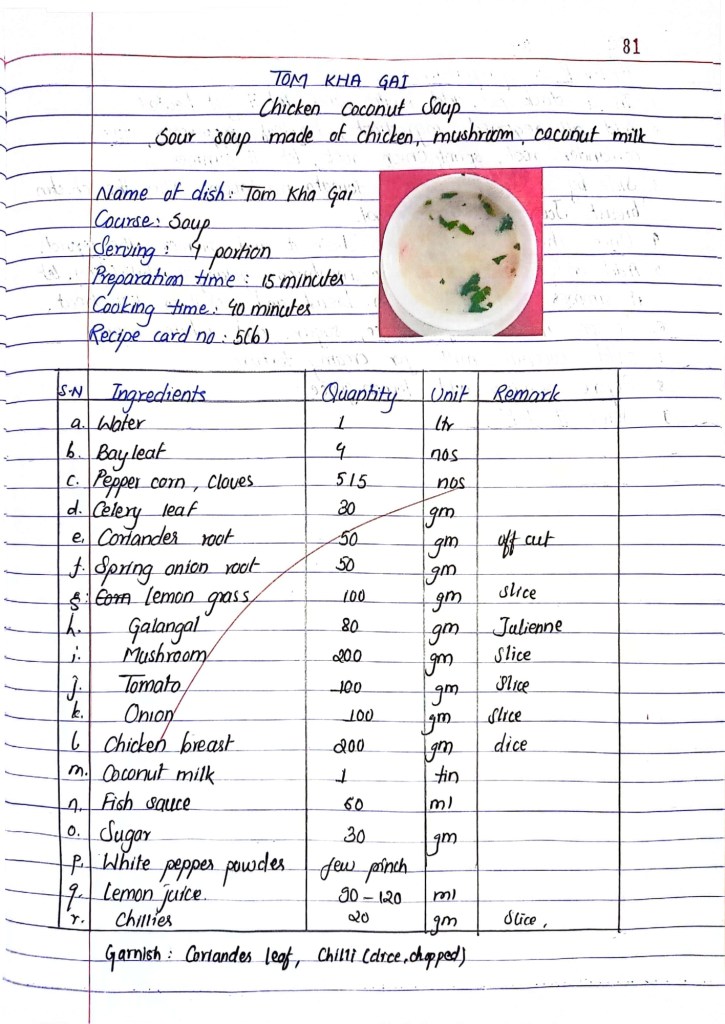 81
TOM KHA GAI
Chicken Coconut Soup
Sour soup made of chicken, mushroom, coconut milk
Name of dish: Tom Kha Gai
Course: Soup
Serving: 4 portion
Preparation time: 15 minutes
Cooking time: 40 minutes
Recipe card no: 5(b)
S.N Ingredients Quantity Unit Remark
a. Water 1 ltr
b. Bay leaf 4 nos
c. Pepper corn, cloves 5/5 nos
d. Celery leaf 30 gm
e. Coriander root 50 gm off cut
f. Spring onion root 50 gm
g. lemon grass 100 gm slice
h. Galangal 80 gm Julienne
i. Mushroom 200 gm Slice
j. Tomato 100 gm Slice
k. Onion 100 gm slice
l Chicken breast 200 gm dice
m. Coconut milk 1 tin
n. Fish sauce 60 ml
o. Sugar 30 gm
p. White pepper powder few pinch
q. Lemon juice. 90-120 ml
r. Chillies 20 gm Slice,
Garnish: Coriander leaf, Chilli (dice, chopped)